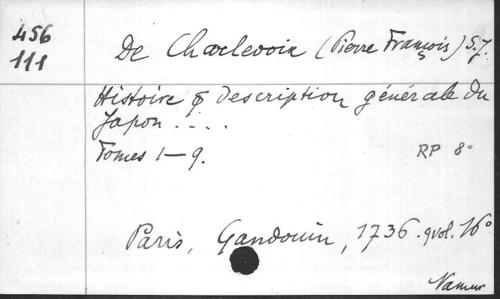 456
111
De Charlevoix (Pierre François) S.J.
Histoire & Description générale du
Japon . . . .
Tomes 1-9.
RP 8°
Paris, Gandouin, 1736. 9vol. 16°
Namur